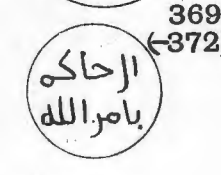 369
(←372
الحاكم
بامر الله